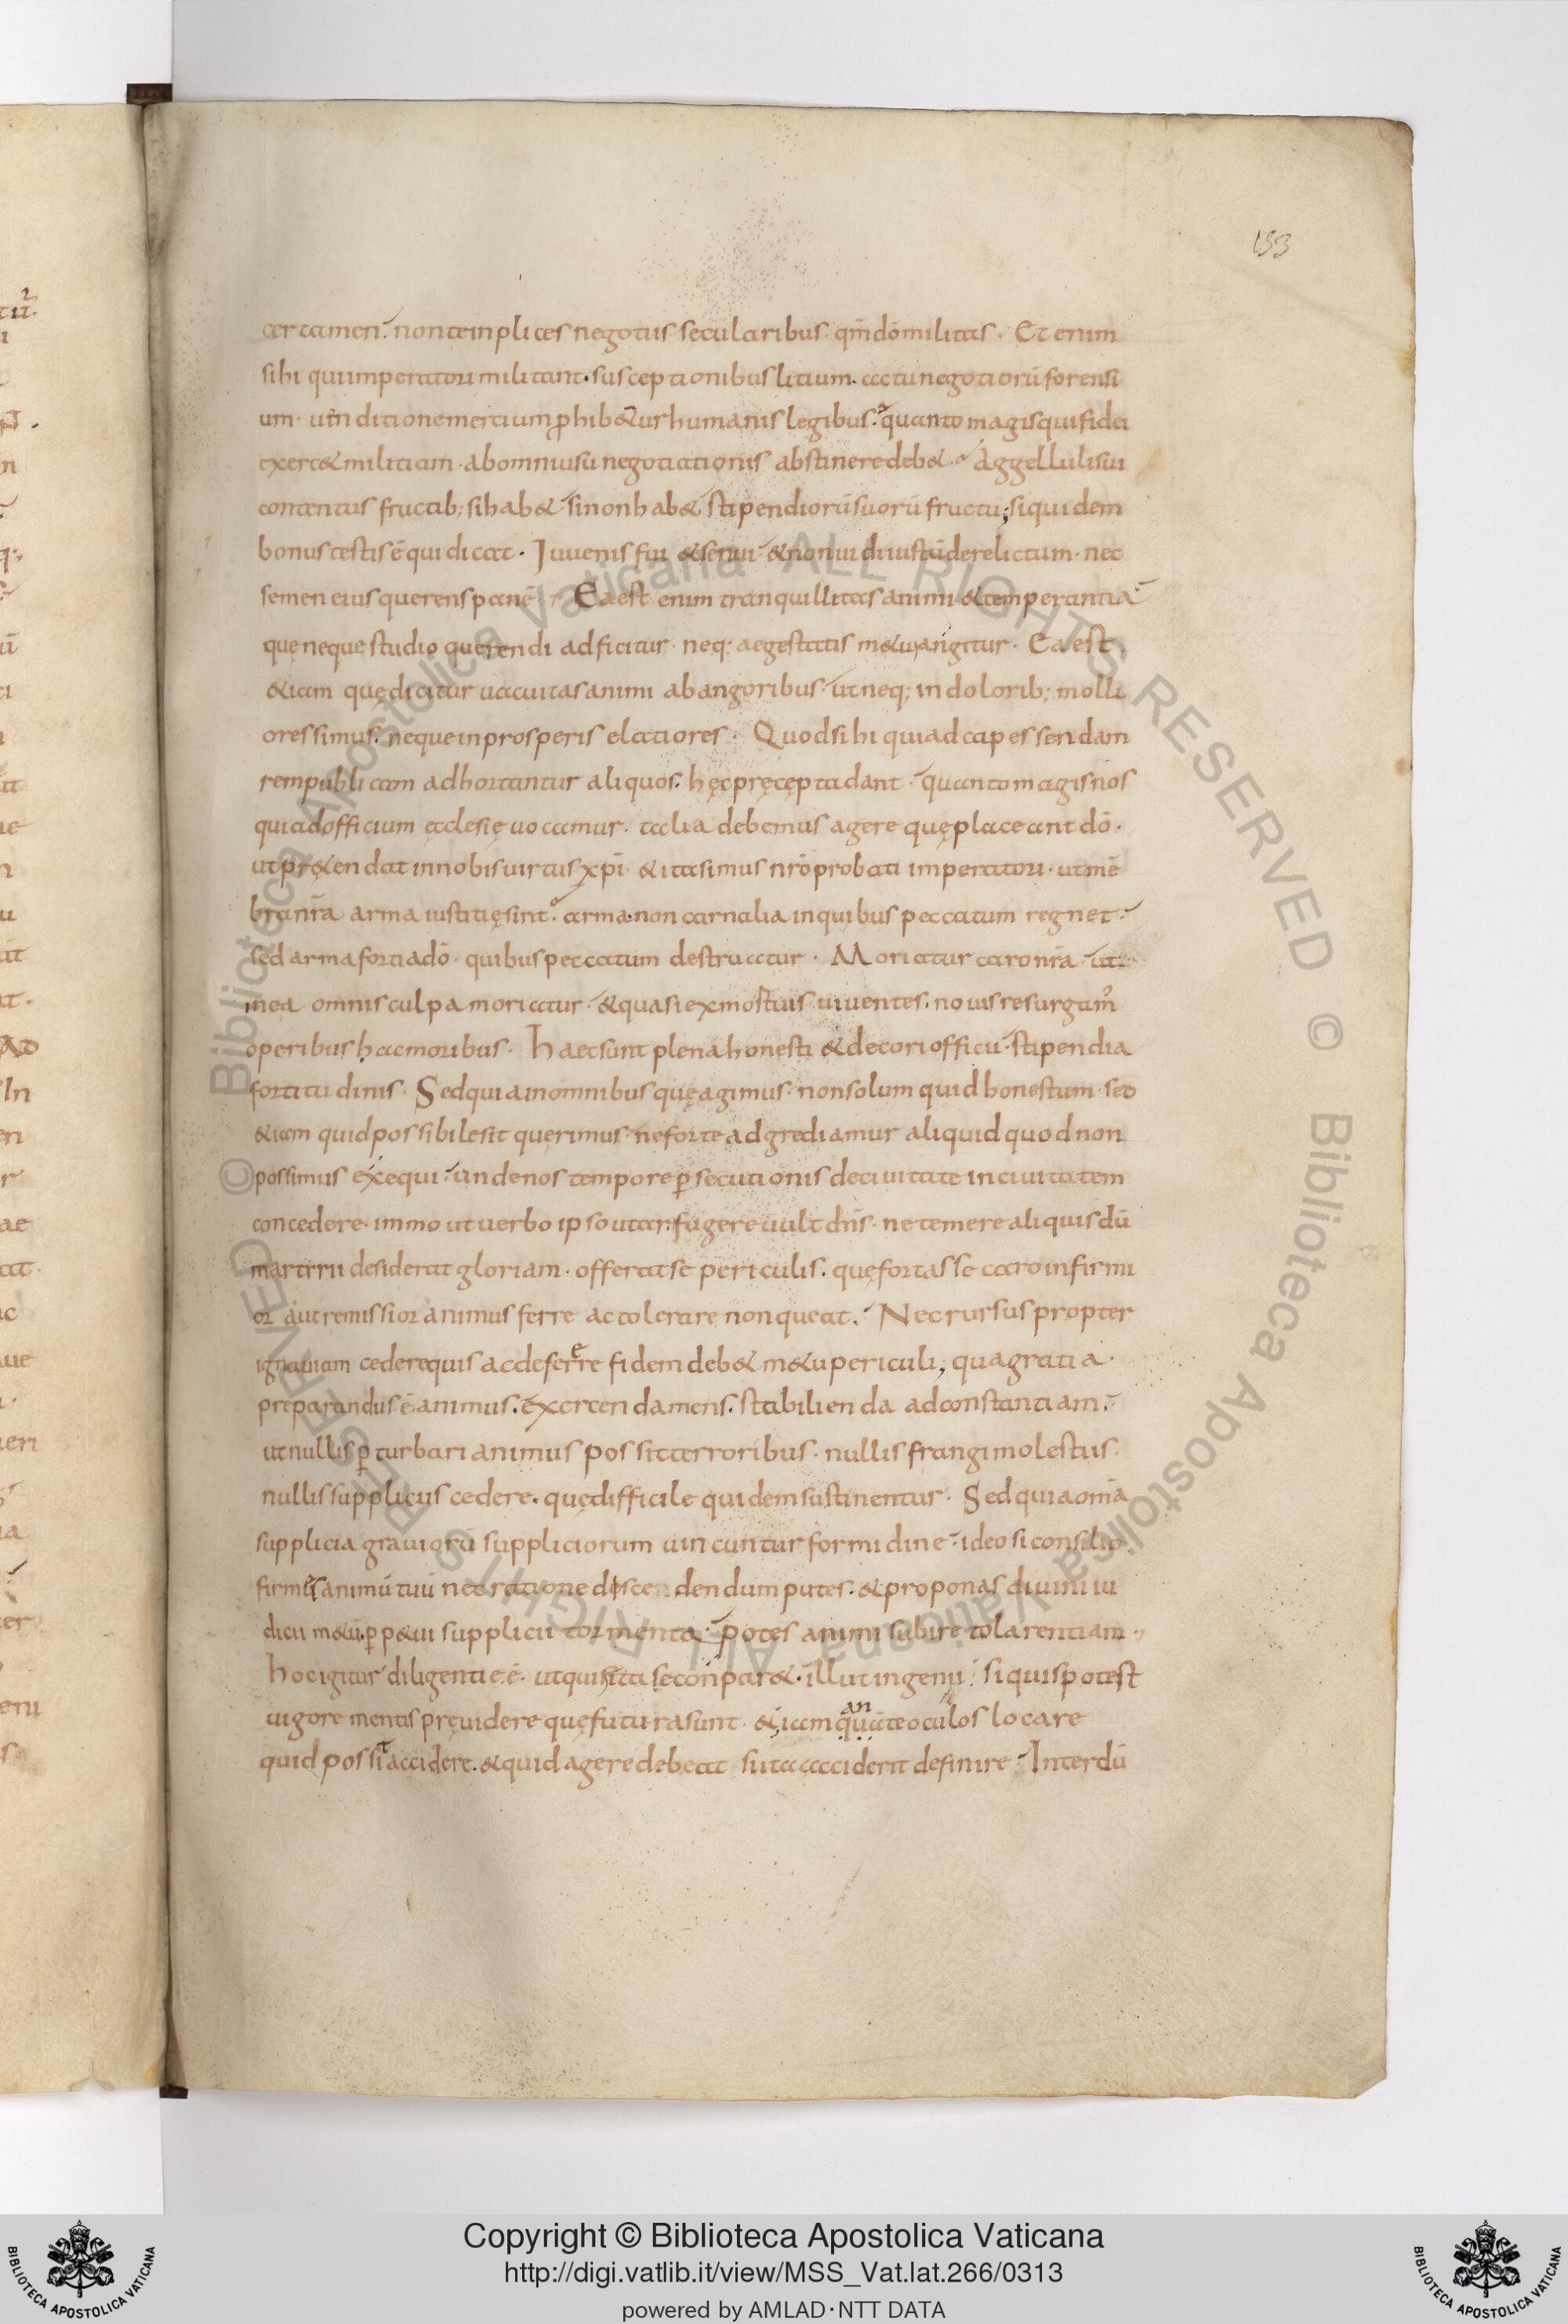 153
certamen. non te inplices negotiis secularibus. qm̄ dō militas. Et enim
si hi qui imperatori militant. susceptionibus litium. actu negotiorū forensi
um. uel uenditione mercium ꝓhibetur humanis legibus. quanto magis qui fidei
exercet militiam. ab omni usu negotiationis abstinere debet. Aggelluli sui
contentus fructib; si habet si non habet stipendiorū suorū fructu; siquidem
bonus testis ē qui dicat. Iuuenis fui & senui & non uidi iustū derelictum. nec
semen eius querens panē. Ea est enim tranquillitas animi & temperantia
quę neque studio querendi adficitur. neq; aegestatis metu angitur. Ea est
&iam quę dicitur uacuitas animi ab angoribus ut neq; in dolorib; molli
ores simus. neque in prosperis elatiores. Quod si hi qui ad capessendam
rempublicam adhortantur aliquos. hęc pręcepta dant. quanto magis nos
qui ad officium ęcclesię uocamur. talia debemus agere quę placeant dō.
ut prętendat in nobis uirtus xp̄i. & ita simus nr̄o probati imperatori. ut mē
bra nr̄a arma iustitię sint. arma non carnalia in quibus peccatum regnet.
sed arma fortia dō. quibus peccatum destruatur. Moriatur caro nr̄a ut
in ea omnis culpa moriatur. & quasi ex mortuis uiuentes. nouis resurgam᾿
operibus hac moribus. Haec sunt plena honesti & decori officii stipendia
fortitudinis. Sed quia in omnibus quę agimus. non solum quid honestum. sed
&iam quid possibile sit querimus. ne forte adgrediamur aliquid quod non
possimus exequi. unde nos tempore ꝑsecutionis de ciuitate in ciuitatem
concedere. immo ut uerbo ipso utar. fugere uult dn̄s. ne temere aliquis dū
martrrii desiderat gloriam. offerat se periculis. quę fortasse caro infirmi
or aut remissior animus ferre ac tolerare non queat. Nec rursus propter
ignauiam cedere quis ac deferere fidem debet metu periculi, qua gratia.
preparandus ē animus. exercenda mens. stabilienda ad constantiam.
ut nullis ꝑturbari animus possit terroribus. nullis frangi molestiis.
nullis suppliciis cedere. quę difficile quidem sustinentur. Sed quia om̄ia
supplicia grauiorū suppliciorum uincuntur formidine. ideo si consilio
firmes animū tuū nec ratione discedendum putes. & proponas diuini iu
dicii metū. ꝑpetui supplicii tormenta. potes animi subire tolarentiam.
Hoc igitur diligentię ē. ut quis ita se conparet. illut ingenii. si quis potest
uigore mentis pręuidere quę futura sunt. & iam quāte oculos locare
quid possit accidere. & quid agere debeat si ita acciderit definire. Interdū
Copyright © Biblioteca Apostolica Vaticana
http://digi.vatlib.it/view/MSS_Vat.lat.266/0313
powered by AMLAD·NTT DATA
BIBLIOTECA APOSTOLICA VATICANA
BIBLIOTECA APOSTOLICA VATICANA
© Biblioteca Apostolica Vaticana ALL RIGHTS RESERVED © Biblioteca Apostolica Vaticana ALL RIGHTS RESERVED